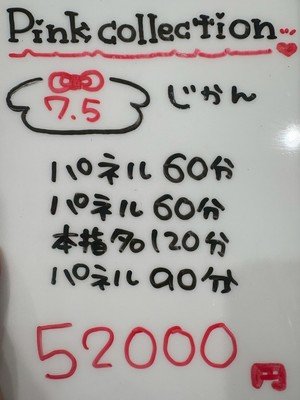 Pink collection
7.5 じかん
パネル 60分
パネル 60分
本指名 120分
パネル 90分
52000円